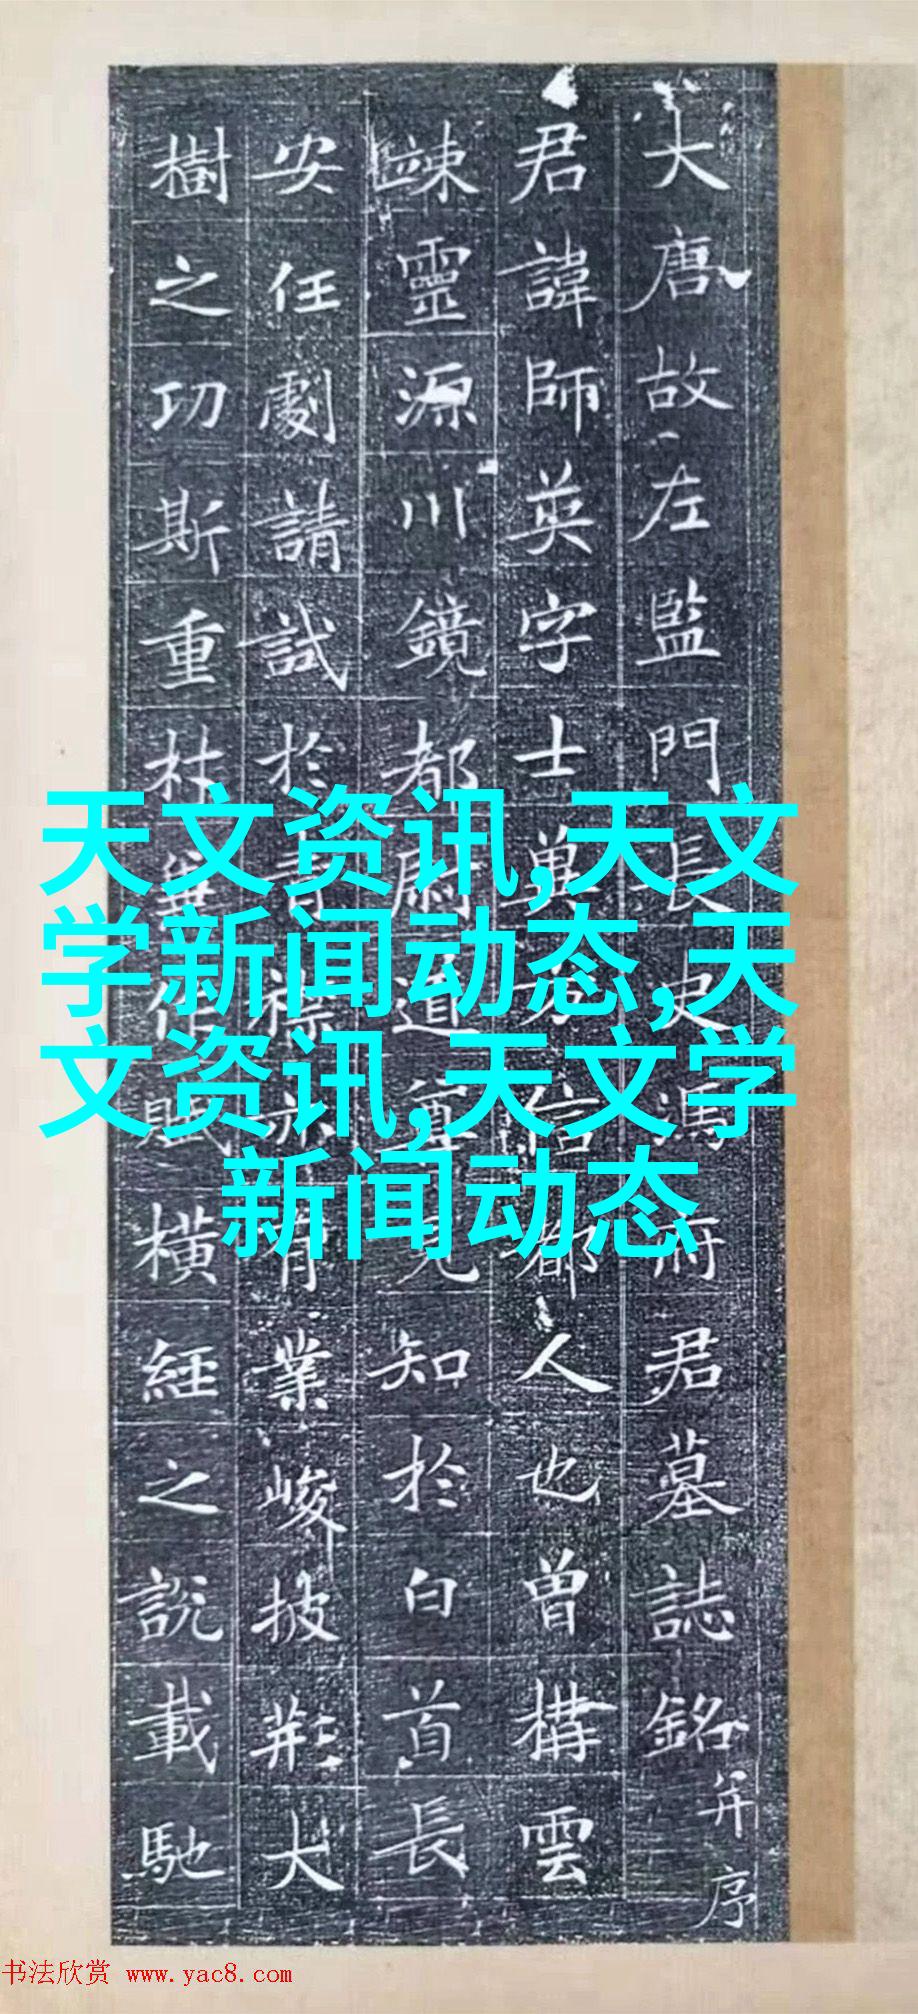 大唐故左監門長史馮府君墓誌銘并序
君諱師英字士信都人也曾構雲
竦靈源川鏡都尉道尊見知於白首長
安任劇請試於青襟亦有業峻披荊大
樹之功斯重作賦橫經之說載馳
天文资讯,天文
学新闻动态,天
文资讯,天文学
新闻动态
书法欣赏 www.yac8.com